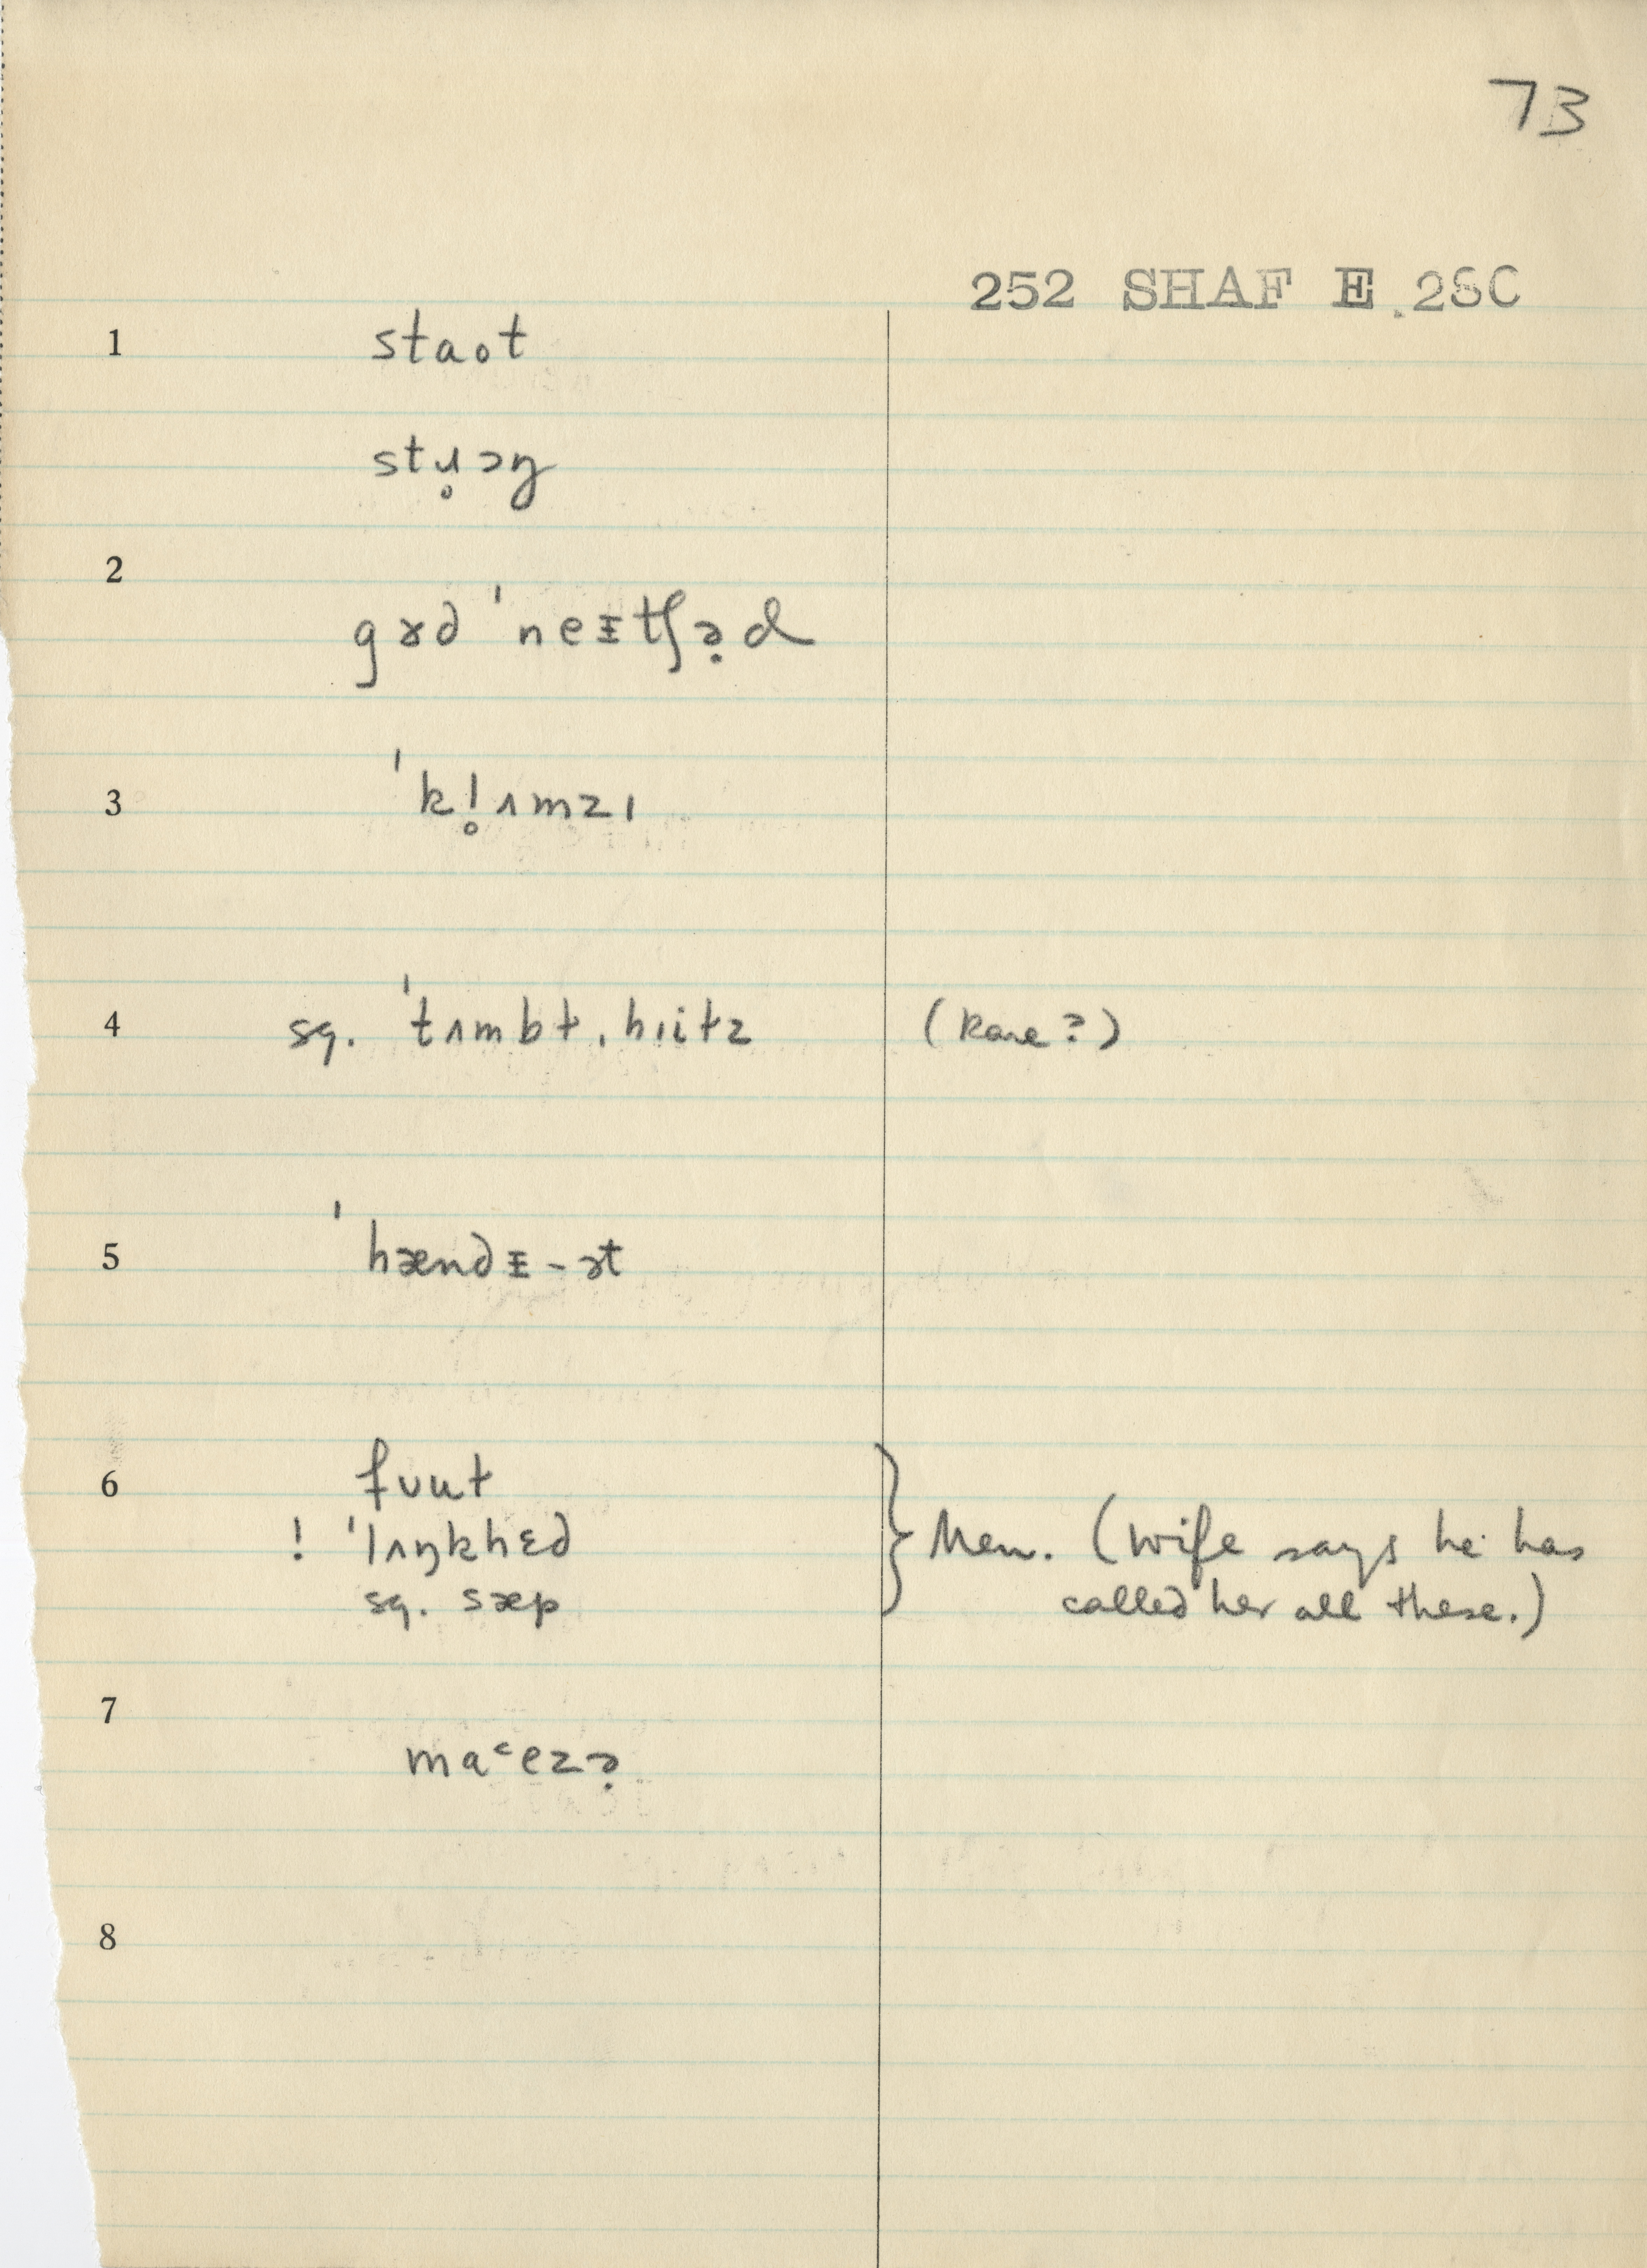 73
252 SHAF E. 28C
1 staot
stɹ̥ɔŋ
2
gɤd ˈneᵻtʃə̣d
3 ˈkl̥ʌmzɪ
4 sg. ˈtʌmbɫ,hɪits (Rare?)
5 ˈhændᵻ-ɚt
6 fʊut
! ˈlʌŋkhɛd } Men. (Wife says he has
sg. sæp called her all these.)
7
ma˂ezə̣
8